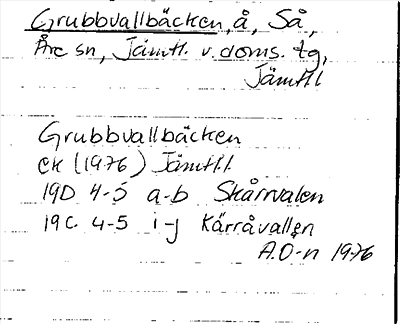 Grubbvallbäcken, å, Så,
Åre sn, Jämtl. v. doms. tg,
Jämtl. l
Grubbvallbäcken
EK (1976) Jämtl. l
19D 4-5 a-b Skårvalen
19C 4-5 i-j Kärråvallen
A.O-n 1976